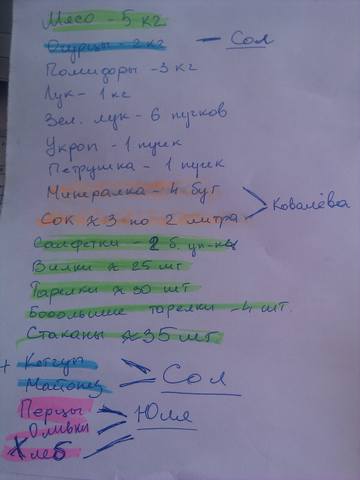 Мясо - 5 кг
Огурцы - 2 кг - Сол
Помидоры - 3 кг
Лук - 1 кг
Зел. лук - 6 пучков
Укроп - 1 пучк
Петрушка - 1 пучк
Минералка - 4 бут
Ковалёва
Сок x 3 по 2 литра
Салфетки - 2 б. уп-ки
Вилки x 25 шт
Тарелки x 30 шт
Бооольшие тарелки - 4 шт.
Стаканы x 35 шт
+ Кетчуп
Майонез
Сол
Перцы
Оливки
Юля
Хлеб